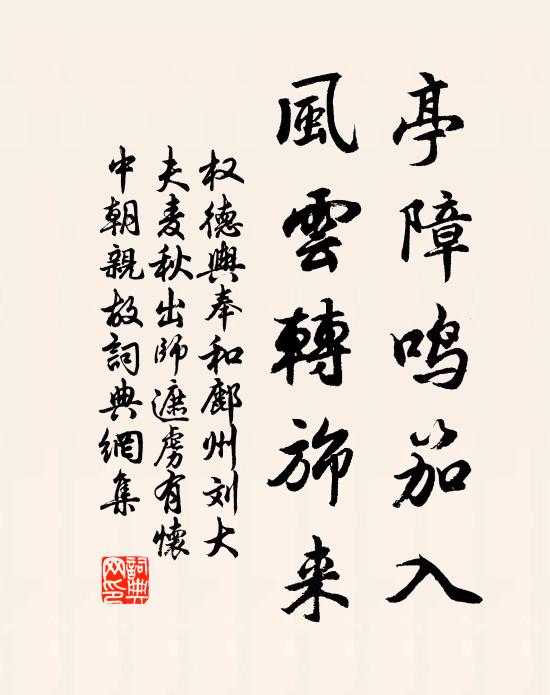 亭障鸣笳入
風雲轉旆来
权德輿奉和鄜州刘大
夫麦秋出師遮虏有懷
中朝親故詞典網集
詞典
网印